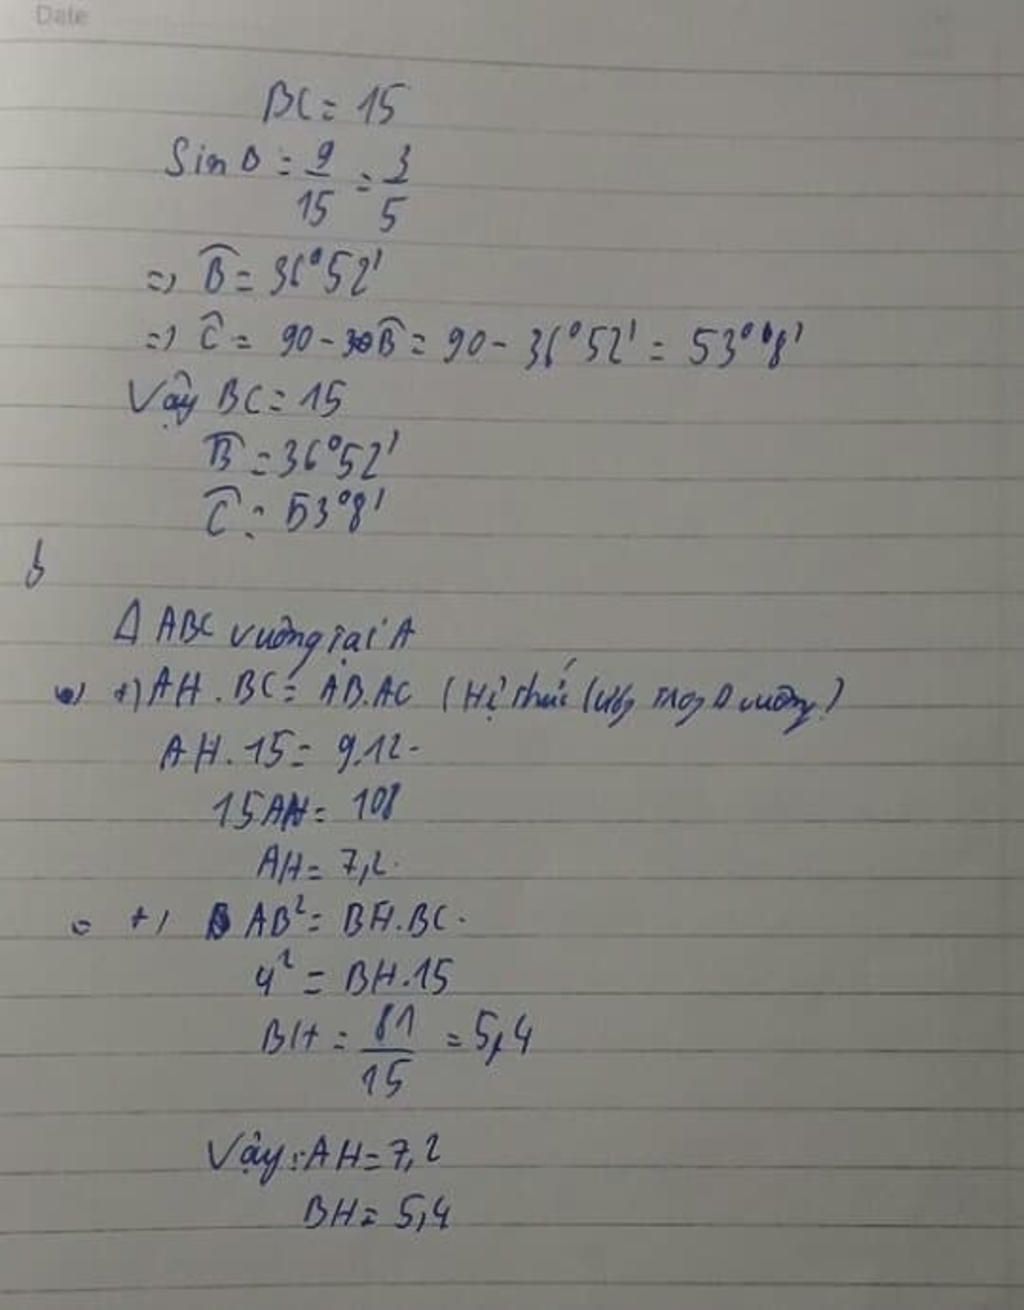 Date
BC = 15
Sin B = 9/15 = 3/5
=> B̂ = 36°52'
=> Ĉ = 90 - B̂ = 90 - 36°52' = 53°8'
Vậy BC = 15
B̂ = 36°52'
Ĉ = 53°8'
b
Δ ABC vuông tại A
+) AH . BC = AB.AC (Hệ thức lượng trong Δ vuông)
AH . 15 = 9.12
15AH = 108
AH = 7,2
= +) AB² = BH.BC
9² = BH.15
BH = 81/15 = 5,4
Vậy: AH = 7,2
BH = 5,4